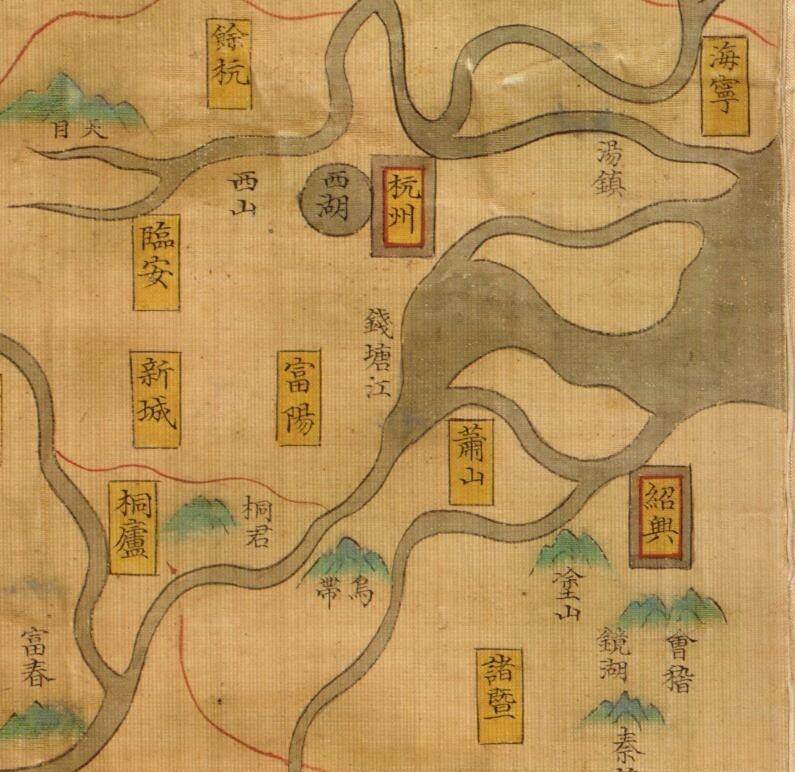 餘杭
海寧
天目
湯鎮
西山
西湖
杭州
臨安
錢塘江
新城
富陽
蕭山
紹興
桐廬
桐君
烏帶
塗山
富春
鏡湖
會稽
諸暨
秦